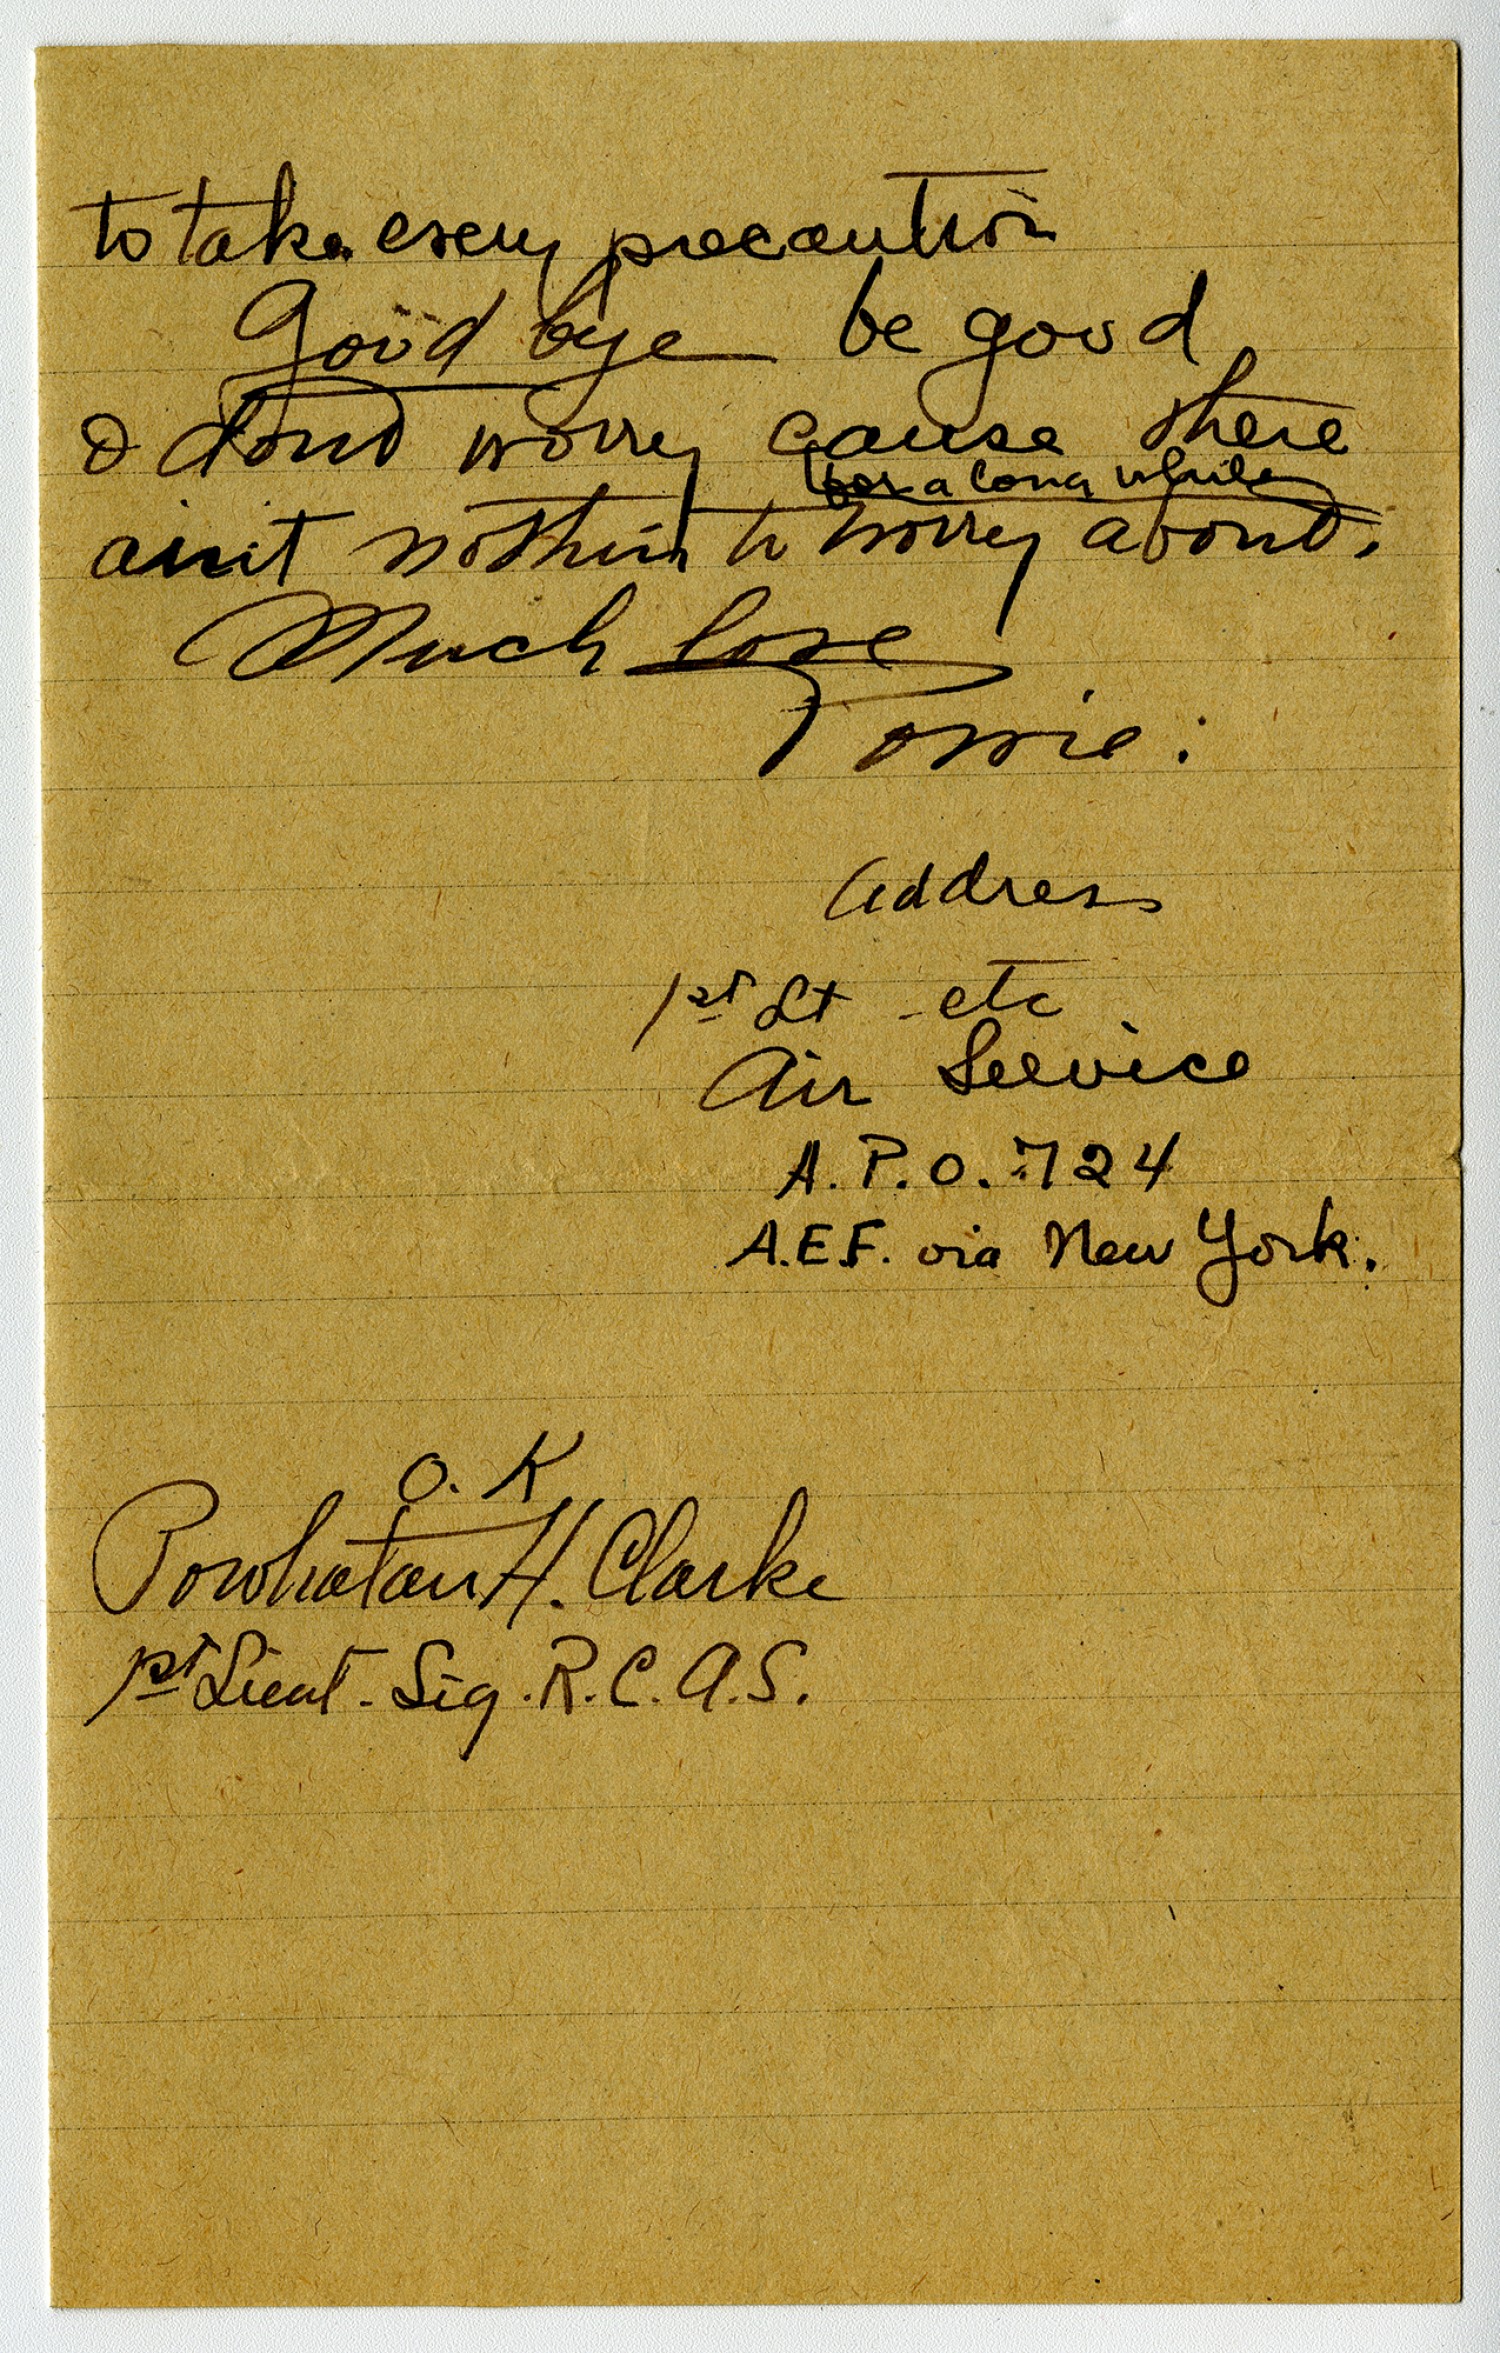 to take every precaution
Good bye be good
& dont worry cause there
for a long while
aint nothin to worry about.
Much love
Powie.
Address
1st Lt etc
Air Service
A.P.O. 724
A.E.F. via New York.
O. K
Powhatan H. Clarke
1st Lieut. Sig. R.C. A.S.